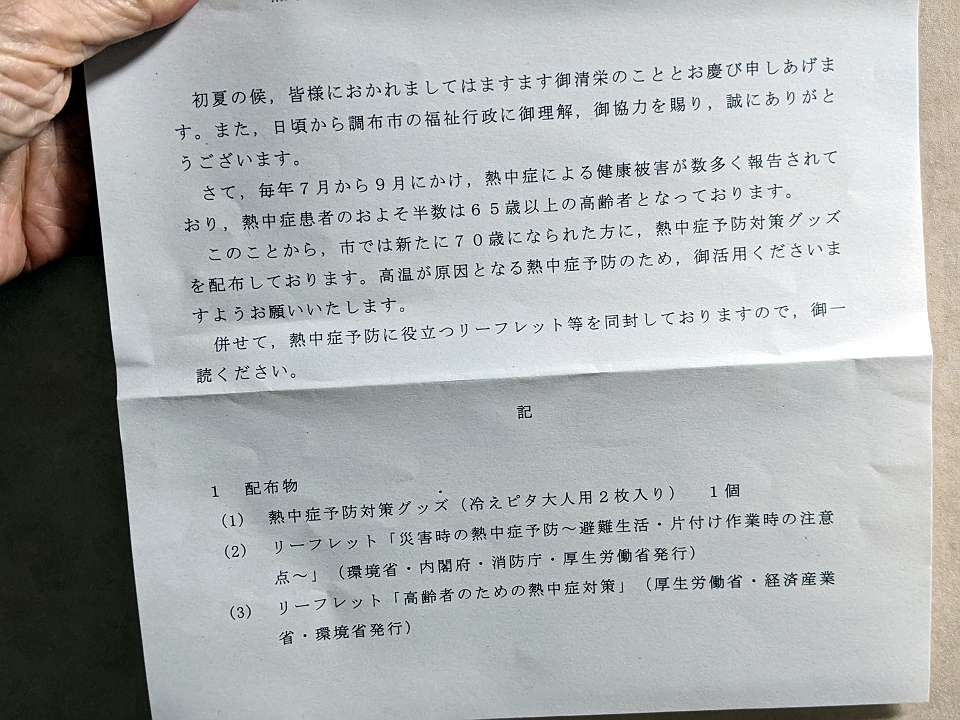 初夏の候，皆様におかれましてはますます御清栄のこととお慶び申しあげま
す。また，日頃から調布市の福祉行政に御理解，御協力を賜り，誠にありがと
うございます。
さて，毎年７月から９月にかけ，熱中症による健康被害が数多く報告されて
おり，熱中症患者のおよそ半数は６５歳以上の高齢者となっております。
このことから，市では新たに７０歳になられた方に，熱中症予防対策グッズ
を配布しております。高温が原因となる熱中症予防のため，御活用くださいま
すようお願いいたします。
併せて，熱中症予防に役立つリーフレット等を同封しておりますので，御一
読ください。
記
１　配布物
(1)　熱中症予防対策グッズ（冷えピタ大人用２枚入り）　１個
(2)　リーフレット「災害時の熱中症予防～避難生活・片付け作業時の注意
点～」（環境省・内閣府・消防庁・厚生労働省発行）
(3)　リーフレット「高齢者のための熱中症対策」（厚生労働省・経済産業
省・環境省発行）